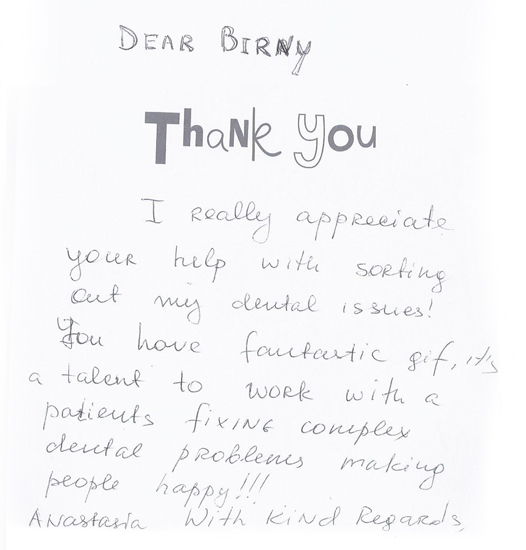 DEAR BIRNY
Thank you
I really appreciate
your help with sorting
out my dental issues!
You have fantastic gif, it's
a talent to work with a
patients fixing complex
dental problems making
people happy!!!
Anastasia With Kind Regards,